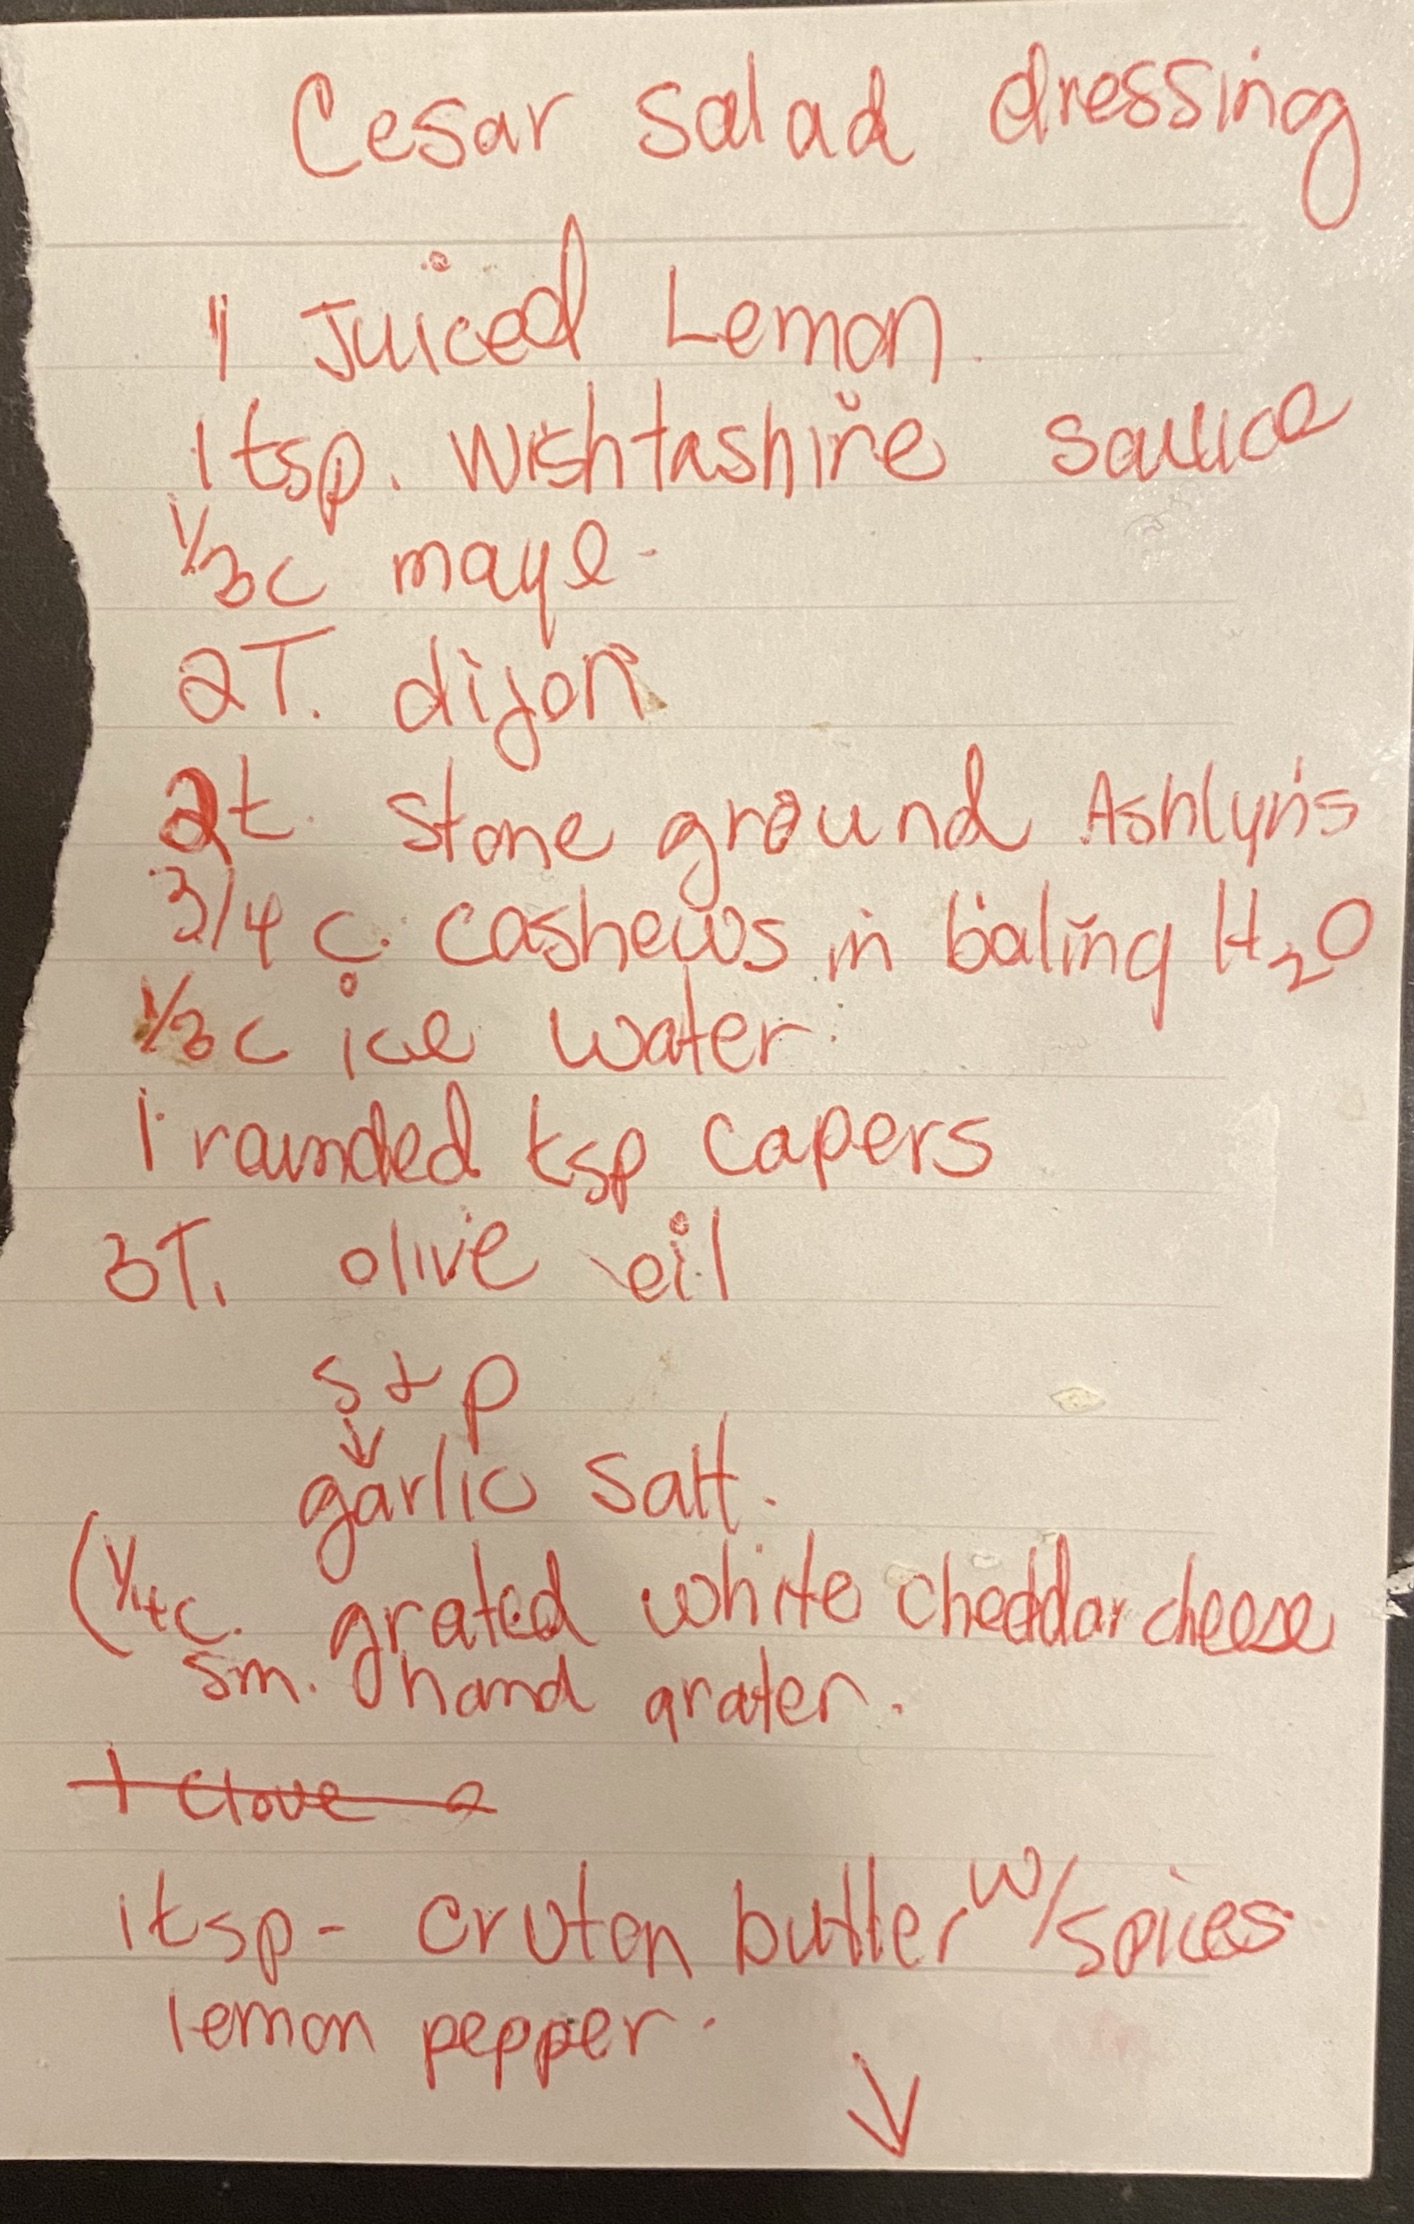 Cesar salad dressing
1 Juiced Lemon
1 tsp. Wishtashire sauce
1/3 c mayo
2T. dijon
2t. Stone ground Ashlyn's
3/4 c. cashews in boling H2O
1/3 c ice water.
1 rounded tsp capers
3T. olive oil
s + p
↓
garlic salt.
(1/4 c. grated white cheddar cheese
sm. hand grater.
1 clove
1 tsp - cruton butter w/spices
lemon pepper.
↓